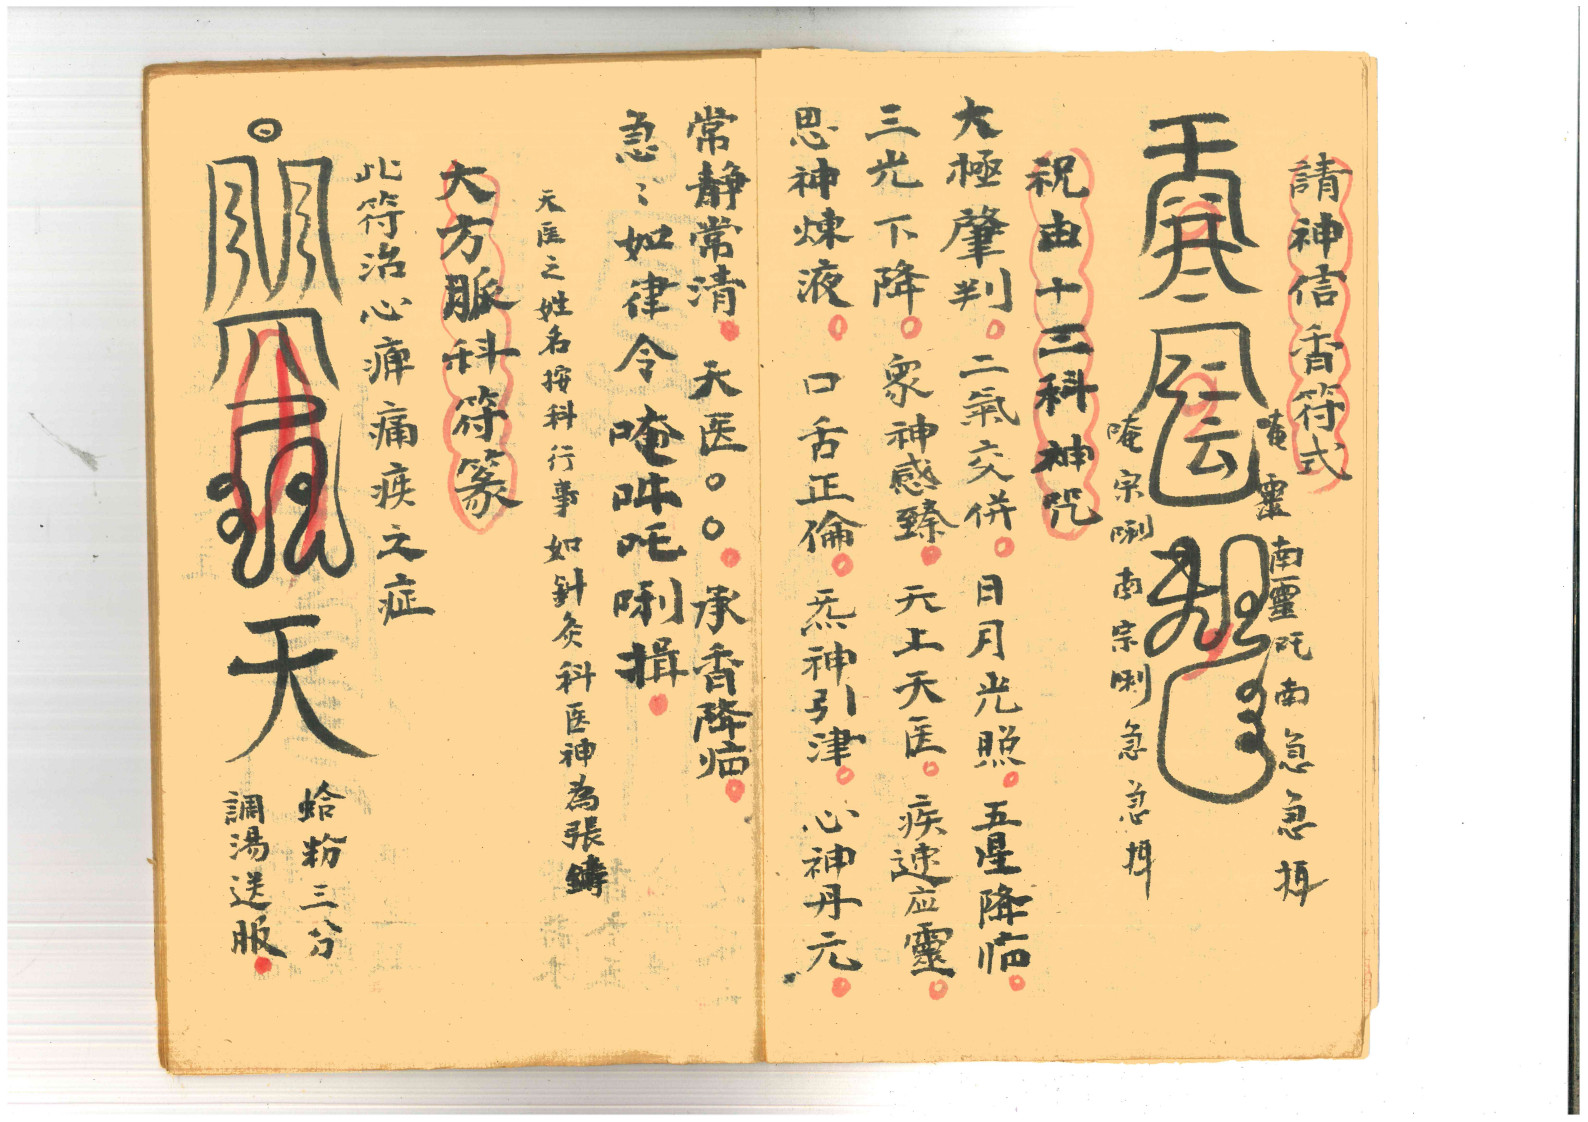 請神信香符式
唵靈南靈吒南急急揖
唵宗唎南宗唎急急揖
祝由十三科神咒
大極肇判。二氣交併。日月光照。五星降临。
三光下降。衆神感臻。天上天医。疾速应靈。
思神煉液。口舌正倫。炁神引津。心神丹元。
常静常清。天医○○。承香降临。
急〻如律令唵吽吒唎揖。
天医之姓名按科行事如針灸科医神為張鑄
大方脈科符篆
此符治心痺痛疾之症
天
蛤粉三分
調湯送服。